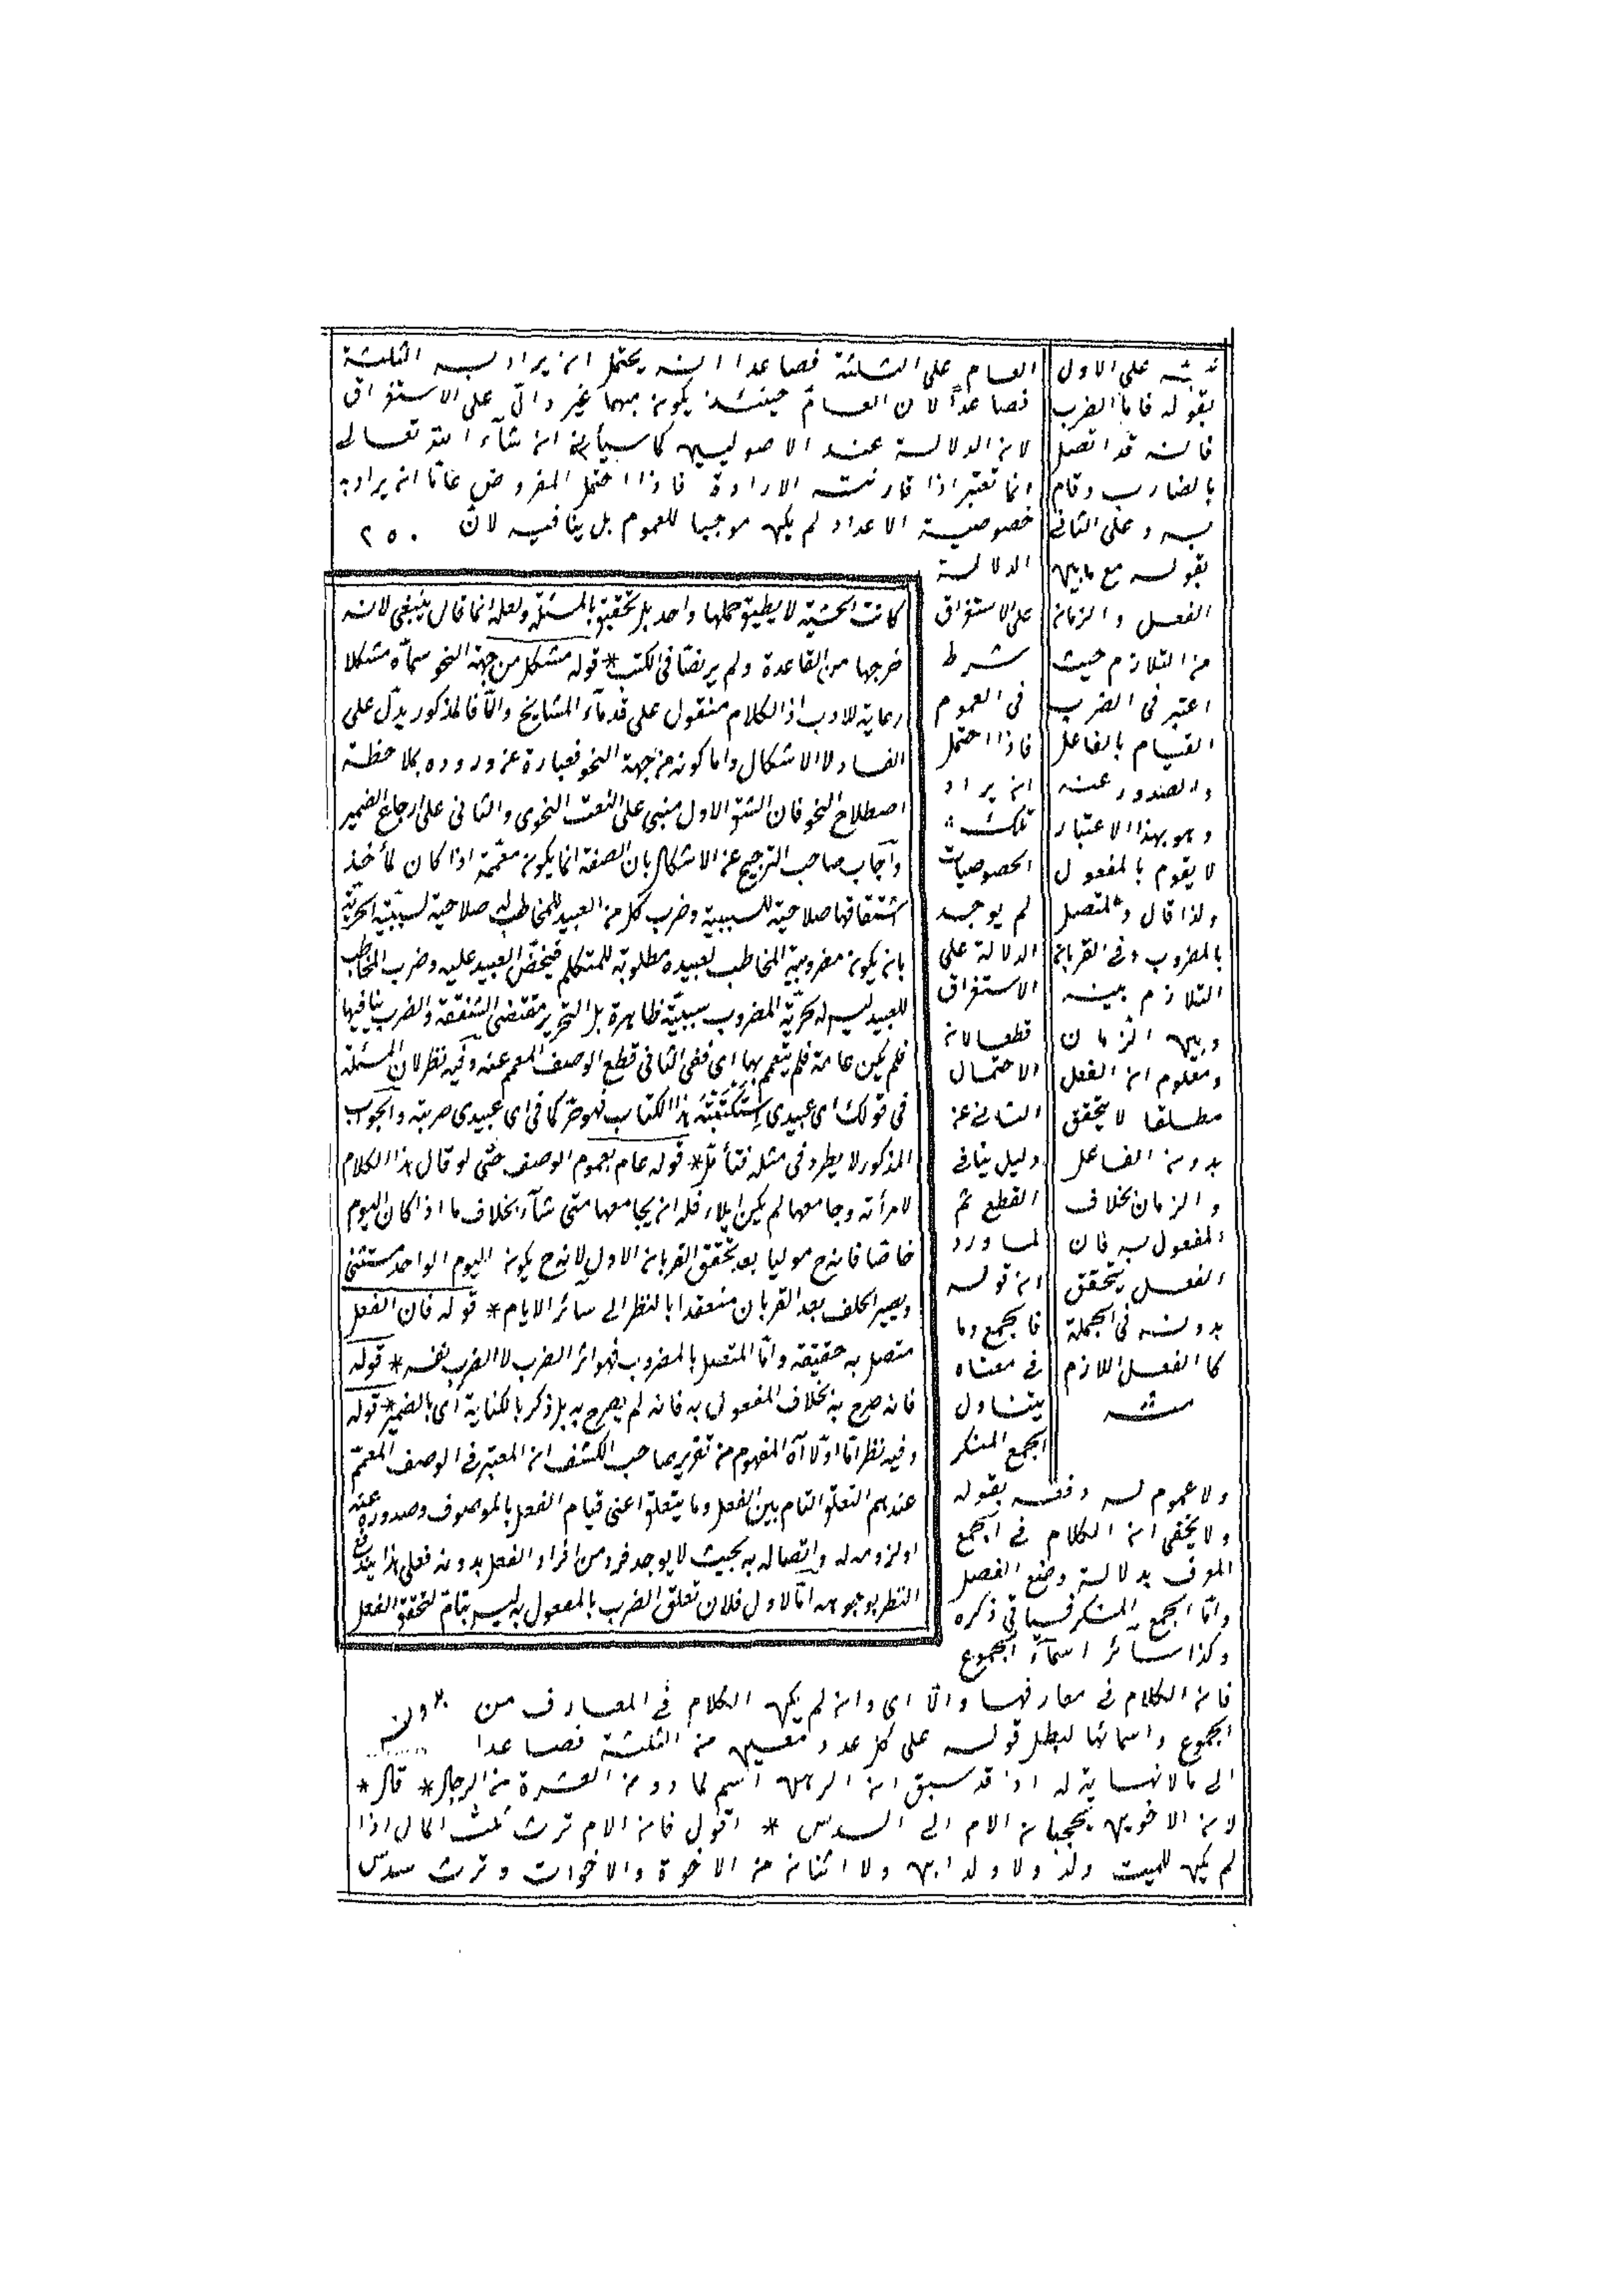 نبّه على الاول
بقوله فاما الضرب
فانه قد اتصل
بالضارب وقام
به وعلى الثانى
بقوله مع ما بين
الفعل والزمان
من التلازم حيث
اعتبر فى الضرب
القيام بالفاعل
والصدور عنه
وهو بهذا الاعتبار
لا يقوم بالمفعول
ولذا قال والمتصل
بالمضروب وفى القربان
التلازم بينه
وبين الزمان
ومعلوم ان الفعل
مطلقا لا يتحقق
بدون الفاعل
والزمان بخلاف
المفعول به فان
الفعل يتحقق
بدونه فى الجملة
كما الفعل اللازم
منه
العام على الثلثة فصاعدا انه يحتمل ان يراد به الثلثة
فصاعداً لان العامّ حينئذ يكون مبهما غير دالّ على الاستغراق
لان الدلالة عند الاصوليين كما سيأتى ان شآء الله تعالى
انما تعتبر اذا قارنت الارادة فاذا احتمل المفروض عامّا ان يراد به
خصوصية الاعداد لم يكن موجبا للعموم بل ينافيه لانّ ٢٥٠
الدلالة
على الاستغراق
شرط
فى العموم
فاذا احتمل
ان يراد
تلك
الخصوصيات
لم يوجد
الدلالة على
الاستغراق
قطعا لان
الاحتمال
الناشئ عن
دليل ينافى
القطع ثم
لما ورد
ان قوله
فالجمع وما
فى معناه
يتناول
الجمع المنكر
ولا عموم له دفعه بقوله
ولا يخفى ان الكلام فى الجمع
المعرف بدلالة وضع الفصل
وامّا الجمع المنكر فسيأتى ذكره
وكذا سائر اسمآء الجموع
فان الكلام فى معارفها والّا اى وان لم يكن الكلام فى المعارف من
الجموع واسمائها لبطل قوله على كل عدد معين من الثلثة فصاعدا
الى ما لا نهاية له اذ قد سبق ان الرهط اسم لما دون العشرة من الرجال * قال *
لان الاخوين يحجبان الام الى السدس * اقول فان الام ترث ثلث المال اذا
لم يكن للميت ولد ولا ولد ابن ولا اثنان من الاخوة والاخوات وترث سدس
كانت الخشبة لا يطيق حملها واحد بل تحقيق بالمسئلة ولعله انما قال ينبغى لانه
خرجها من القاعدة ولم ير نصّا فى الكتب * قوله مشكل من جهة النحو سمآه مشكلا
رعاية للادب اذ الكلام منقول على قدمآء المشايخ والّا فالمذكور يدلّ على
الفساد لا الاشكال واما كونه من جهة النحو فعبارة عن وروده بملاحظة
اصطلاح النحو فان الشق الاول مبنى على النعت النحوى والثانى على ارجاع الضمير
وآجاب صاحب الترجيح عن الاشكال بان الصفة انما يكون معمّمة اذا كان لمأخذ
اشتقاقها صلاحية للسببية وضرب كل من العبيد للمخاطب له صلاحية لسببية الحرّيّة
بان يكون مضروبية المخاطب لعبيده مطلوبة للمتكلم وضرب المخاطب
للعبيد ليس له لحرّية المضروب سببيّة ظاهرة بل التحرير مقتضى الشفقة والضرب ينافيها
فلم يكن عامة فلم يتعمم بها اى ففى الثانى قطع الوصف المعمم عنه وفيه نظر لان المسئلة
فى قولك اى عبيدى استكتبته هذا الكتاب فهو حر كما فى اى عبيدى ضربته والجواب
المذكور لا يطرد فى مثله فتأمّل * قوله عام بعموم الوصف حتّى لو قال هذا الكلام
لامرأته وجامعها لم يكن ايلاء فله ان يجامعها متى شآء بخلاف ما اذا كان اليوم
خاصّا فانه ح موليا بعد تحقق القربان الاول لانه ح يكون اليوم الواحد مستثنى
ويصير الحلف بعد القربان منعقدا بالنظر الى سائر الايام * قوله فان الفعل
متصل به حقيقة وامّا المتصل بالمضروب فهو اثر الضرب لا الضرب نفسه * قوله
فانه صرح به بخلاف المفعول به فانه لم يصرح به بل ذكر بالكناية اى بالضمير * قوله
وفيه نظر امّا اوّلا آه المفهوم من تقرير صاحب الكشف ان المعتبر فى الوصف المعمّم
عندهم التعلق التام بين الفعل وما يتعلق اعنى قيام الفعل بالموصوف وصدوره عنه
او لزومه له واتصاله به بحيث لا يوجد فرد من افراد الفعل بدونه فعلى هذا يندفع
النظر بوجوهه امّا الاول فلان تعلق الضرب بالمفعول به ليس بتامّ لتحقق الفعل